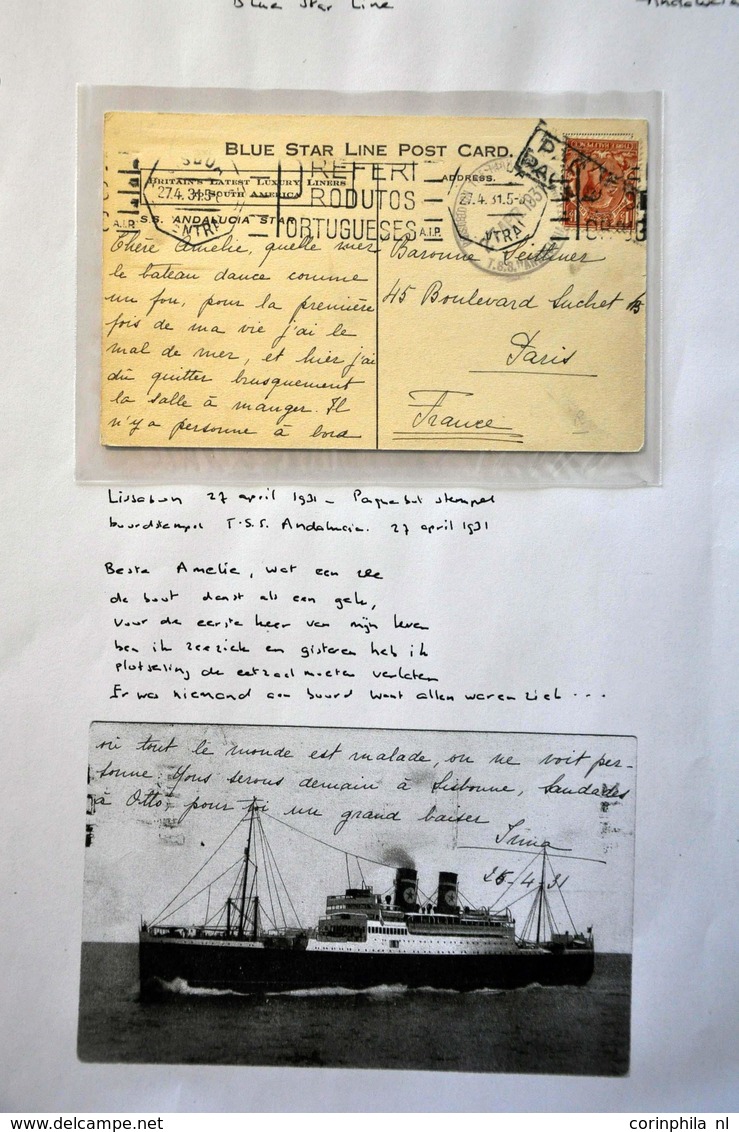 Blue Star Line
BLUE STAR LINE POST CARD.
BRITAIN'S LATEST LUXURY LINERS
SOUTH AMERICA
S.S. ANDALUCIA STAR
ADDRESS.
27.4.31.5-
NTRAL
REFERI
RODUTOS
ORTUGUESES
A.I.P.
27.4.31.5-
NTRAL
A.I.P.
1931
Chère Amélie, quelle mer
le bateau dance comme
un fou, pour la première
fois de ma vie j'ai le
mal de mer, et hier j'ai
dû quitter brusquement
la salle à manger. Il
n'y a personne à bord
Baronne
45 Boulevard Suchet
Paris
France
Lissabon 27 april 1931 - Paquebot stempel
boordstempel T.S.S. Andalucia. 27 april 1931
Beste Amelie, wat een zee
de boot danst als een gek,
voor de eerste keer van mijn leven
ben ik zeeziek en gisteren heb ik
plotseling de eetzaal moeten verlaten
Er was niemand aan boord want allen waren ziek ...
où tout le monde est malade, on ne voit per-
sonne. Nous serons demain à Lisbonne, Saudades
à Otto pour toi un grand baiser
Irma
25-4-31
www.delcampe.net
corinphila nl